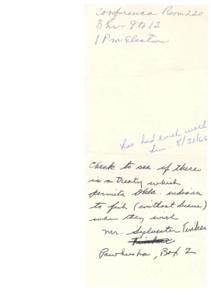 Conference Room 220
3 hr - 9 to 12
1 PM Election
has had each week
8/31/66
Check to see if there
is a treaty which
permits Okla indians
to fish (without license)
when they wish
Mr. Sylvester Tinker
Pawhuska, Box 2